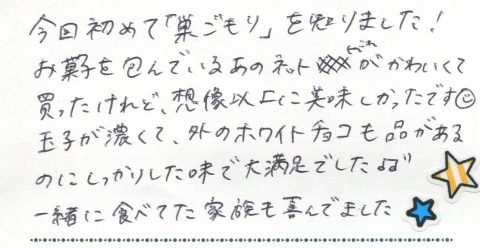 今回初めて「巣ごもり」を知りました!
お菓子を包んでいるあのネット(これ)がかわいくて
買ったけれど、想像以上に美味しかったです☺
玉子が濃くて、外のホワイトチョコも品がある
のにしっかりした味で大満足でした♫
一緒に食べてた家族も喜んでました